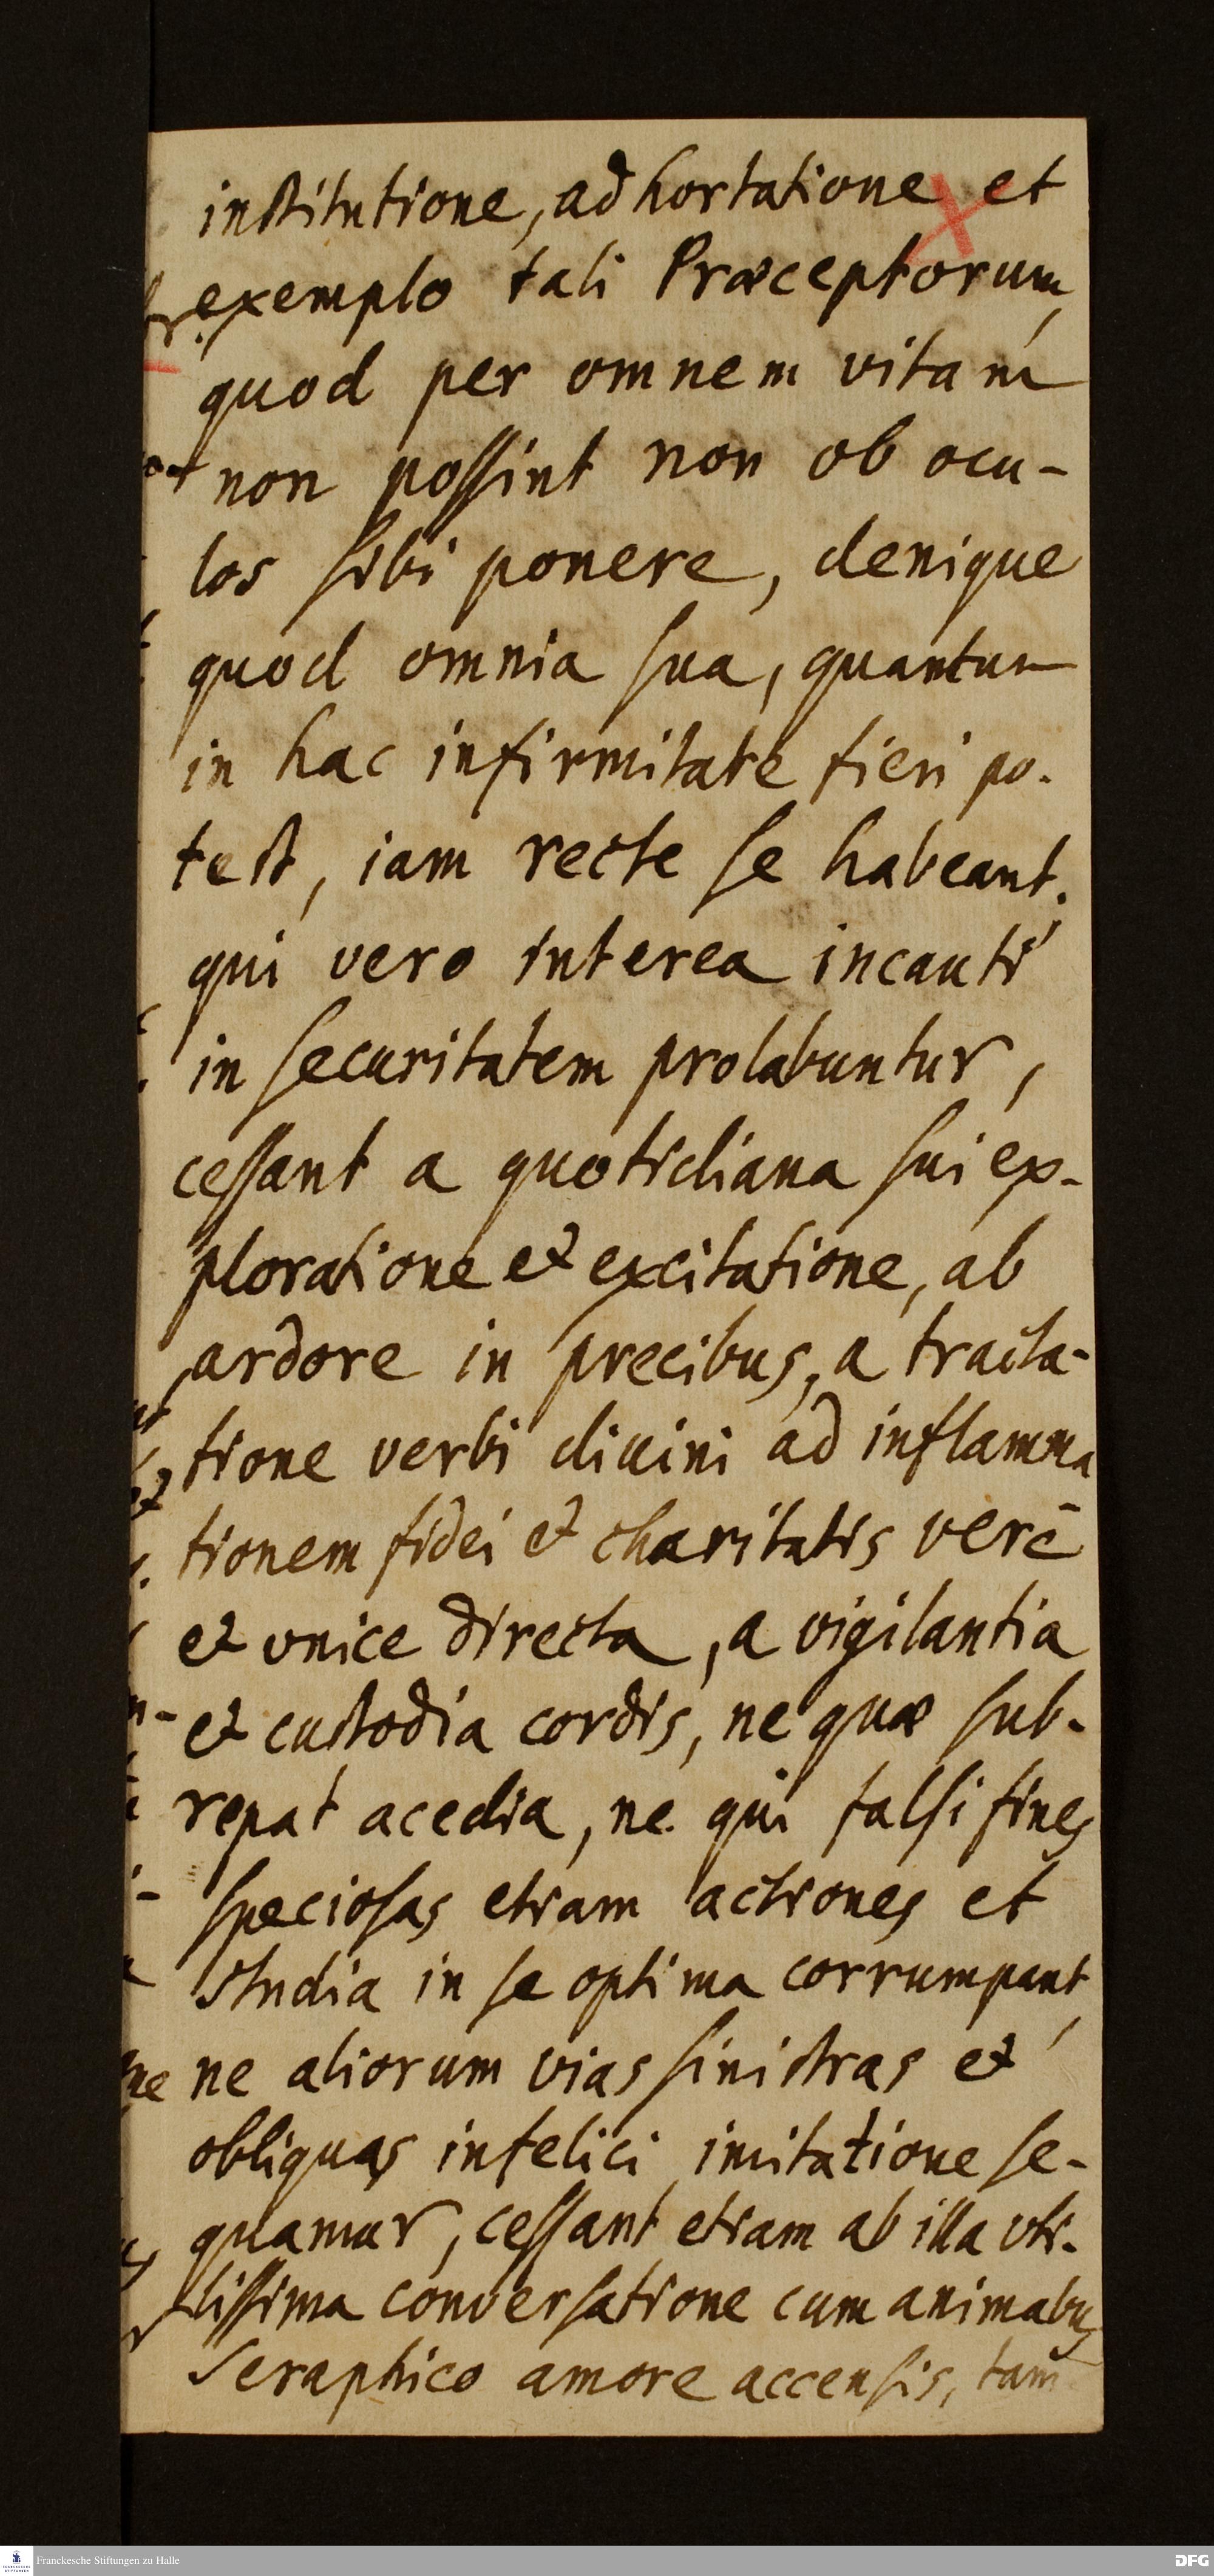 institutione, adhortatione et
exemplo tali Præceptorum,
quod per omnem vitam
non possint non ob ocu-
los sibi ponere, denique
quod omnia sua, quantum
in hac infirmitate fieri po-
test, iam recte se habeant.
qui vero interea incauti
in securitatem prolabuntur,
cessant a quotidiana sui ex-
ploratione et excitatione, ab
ardore in precibus, a tracta-
tione verbi diuini ad inflamma
tionem fidei et charitatis verè
et vnice directa, a vigilantia
et custodia cordis, ne quæ sub-
repat acedia, ne qui falsi fines
speciosas etiam actiones et
studia in se optima corrumpant,
ne aliorum vias sinistras et
obliquas infelici imitatione se-
quamur, cessant etiam ab illa vti-
lissima conversatione cum animabus
Seraphico amore accensis, tam
Franckesche Stiftungen zu Halle
DFG